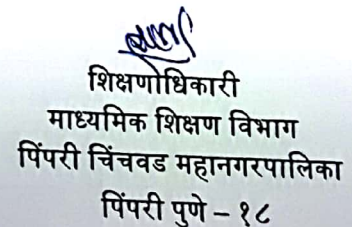 शिक्षणाधिकारी
माध्यमिक शिक्षण विभाग
पिंपरी चिंचवड महानगरपालिका
पिंपरी पुणे – १८